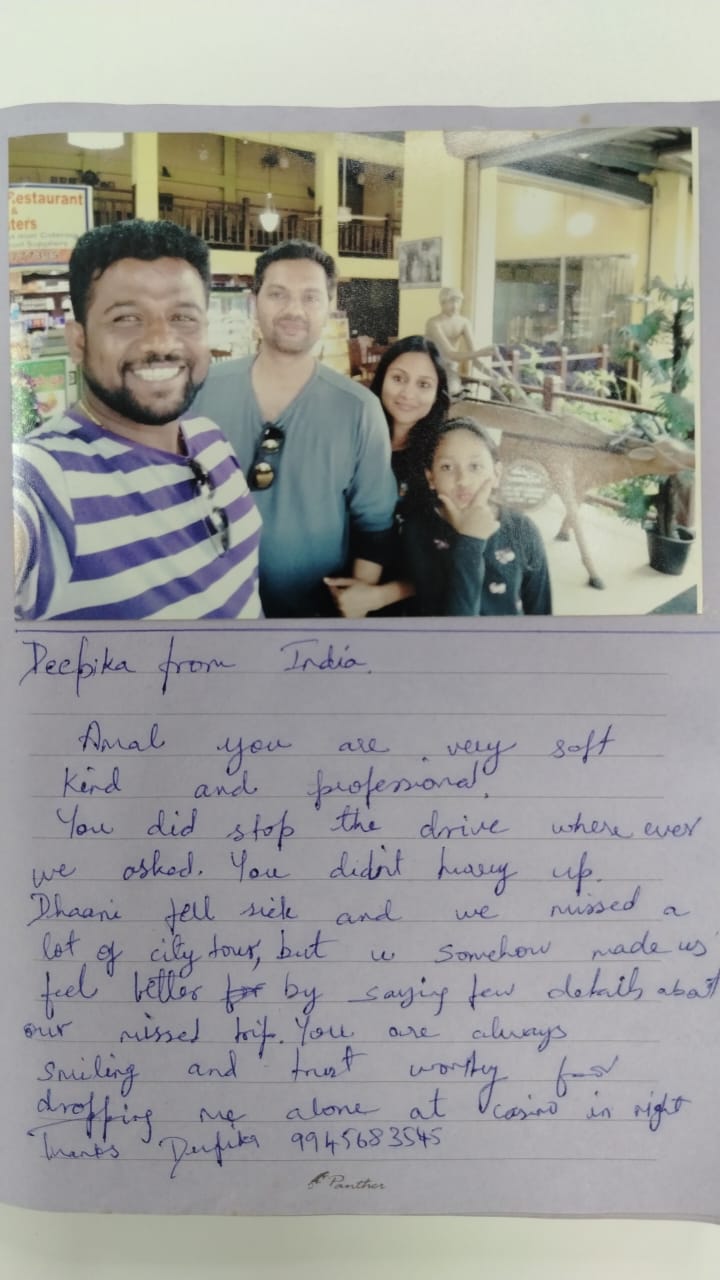 Restaurant
&
ters
Deepika from India.
Amal you are very soft
kind and professional.
You did stop the drive where ever
we asked. You didn't hurry up.
Dhaani fell sick and we missed a
lot of city tour, but u somehow made us
feel better for by saying few details about
our missed trip. You are always
smiling and trust worthy for
dropping me alone at casino in night
Thanks Deepika 9945683545
Panther